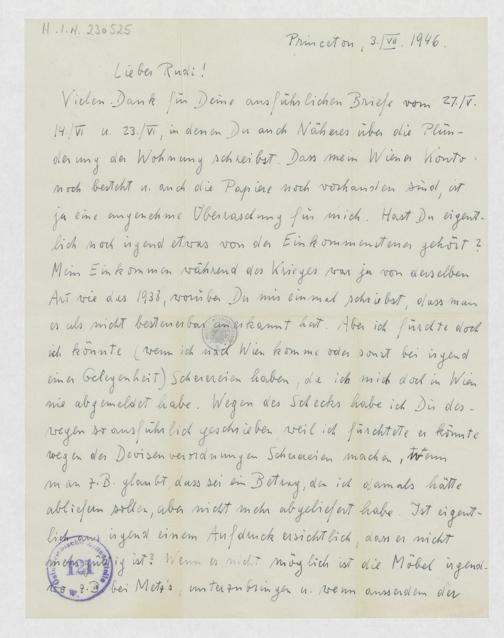 H.I.N. 230525
Princeton, 3./VII. 1946.
Lieber Rudi!
Vielen Dank für Deine ausführlichen Briefe vom 27./V.
14./VI u. 23./VI, in denen Du auch Näheres über die Plün-
derung der Wohnung schreibst. Dass mein Wiener Konto
noch besteht u. auch die Papiere noch vorhanden sind, ist
ja eine angenehme Überraschung für mich. Hast Du eigent-
lich noch irgend etwas von der Einkommensteuer gehört?
Mein Einkommen während des Krieges war ja von derselben
Art wie das 1938, worüber Du mir einmal schriebst, dass man
es als nicht besteuerbar anerkannt hat. Aber ich fürchte doch
ich könnte (wenn ich nach Wien komme oder sonst bei irgend
einer Gelegenheit) Scherereien haben, da ich mich doch in Wien
nie abgemeldet habe. Wegen des Schecks habe ich Dir des-
wegen so ausführlich geschrieben weil ich fürchtete er könnte
wegen der Devisenverordnungen Scherereien machen, wenn
man z.B. glaubt dass sei ein Betrag, den ich damals hätte
abliefern sollen, aber nicht mehr abgeliefert habe. Ist eigent-
lich aus irgend einem Aufdruck ersichtlich, dass er nicht
ist? Wenn es nicht möglich ist die Möbel irgend-
wo z.B. bei Metz's, unterzubringen u. wenn ausserdem der